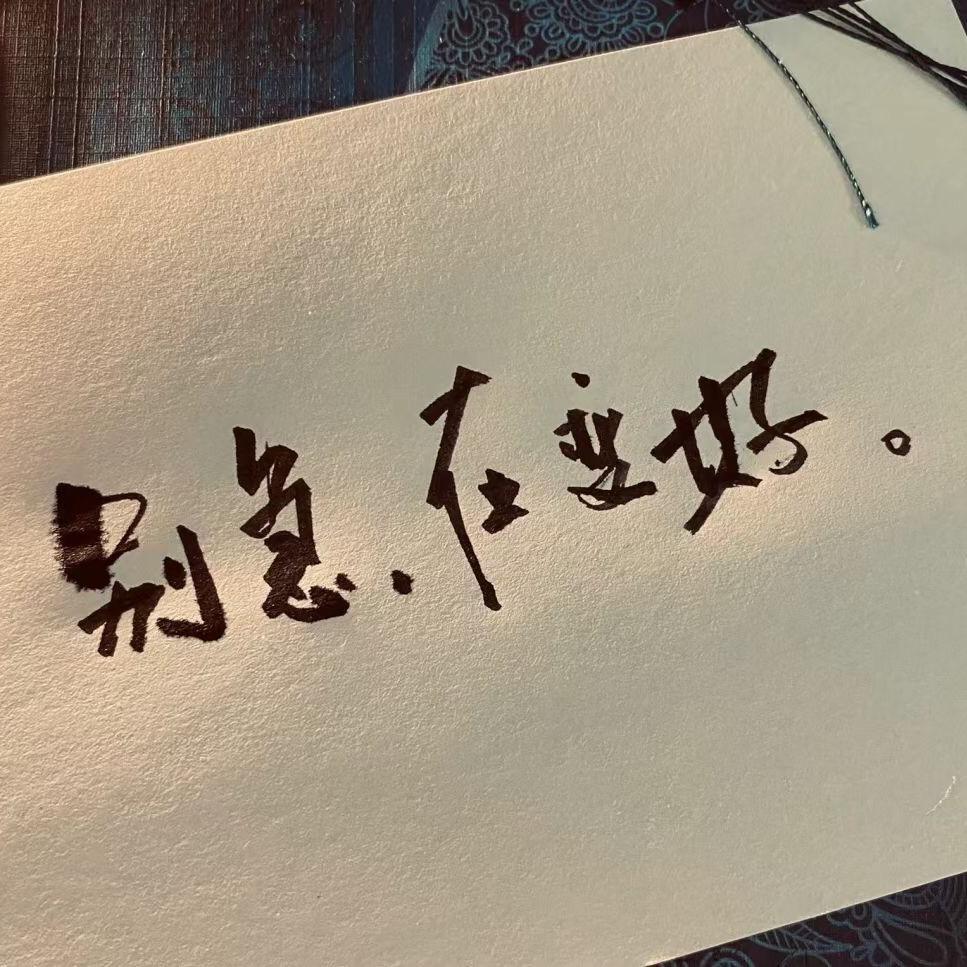 别急.在变好。